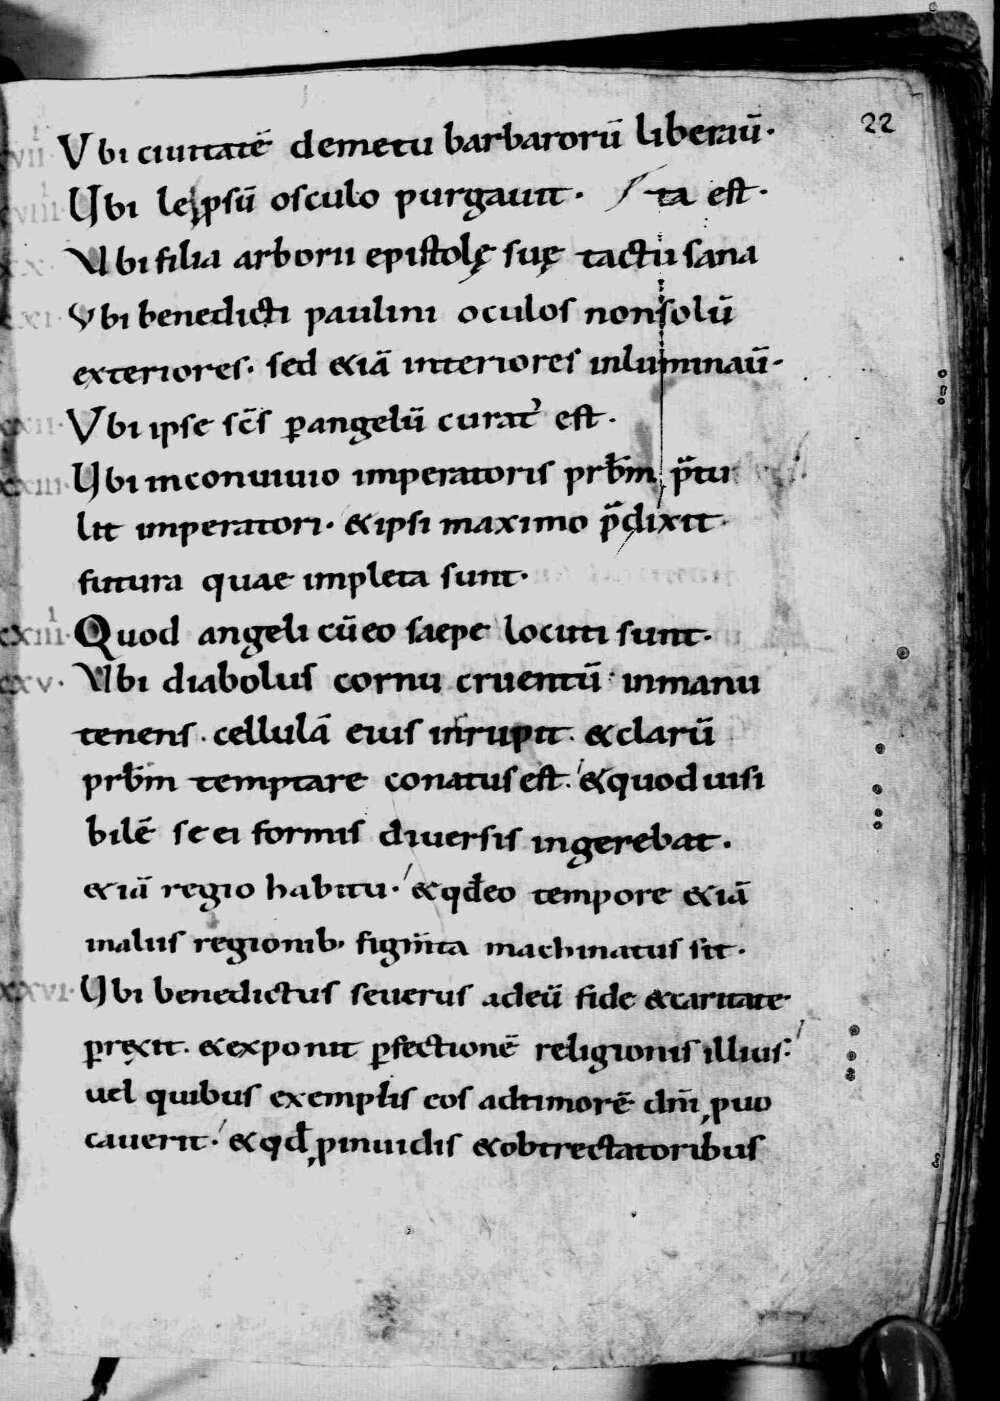 22
vii Ubi ciuitatē demetu barbarorū liberaū·
viii· Ubi lepsū osculo purgauit· ta est·
xx· Ubi filia arborii epistolę suę tactu sana
xxi· Ubi benedicti paulini oculos nonsolū
exteriores· sed &iā interiores inluminaū·
xxii· Ubi ipse sc̄s ꝑangelū curat᾿ est·
xxiii· Ubi inconuiuio imperatoris prb̄m p̄tu
lit imperatori· &ipsi maximo p̄dixit·
futura quae impleta sunt·
xxiiii· Quod angeli cūeo saepe locuti sunt·
xxv· Ubi diabolus cornu cruentū inmanu
tenens· cellulā eius inrupit· &clarū
prb̄m temptare conatus est· &quod uisi
bilē se ei formis diuersis ingerebat·
&iā regio habitu· &qđeo tempore &iā
inaliis regionib; figm̄ta machinatus sit·
xxvi· Ubi benedictus seuerus adeū fide &caritate
ꝑręxit· &exponit ꝑfectionē religionis illius·
uel quibus exemplis eos adtimorē dn̄i ꝓuo
cauerit· &qđ ꝓinuidis &obtrectatoribus